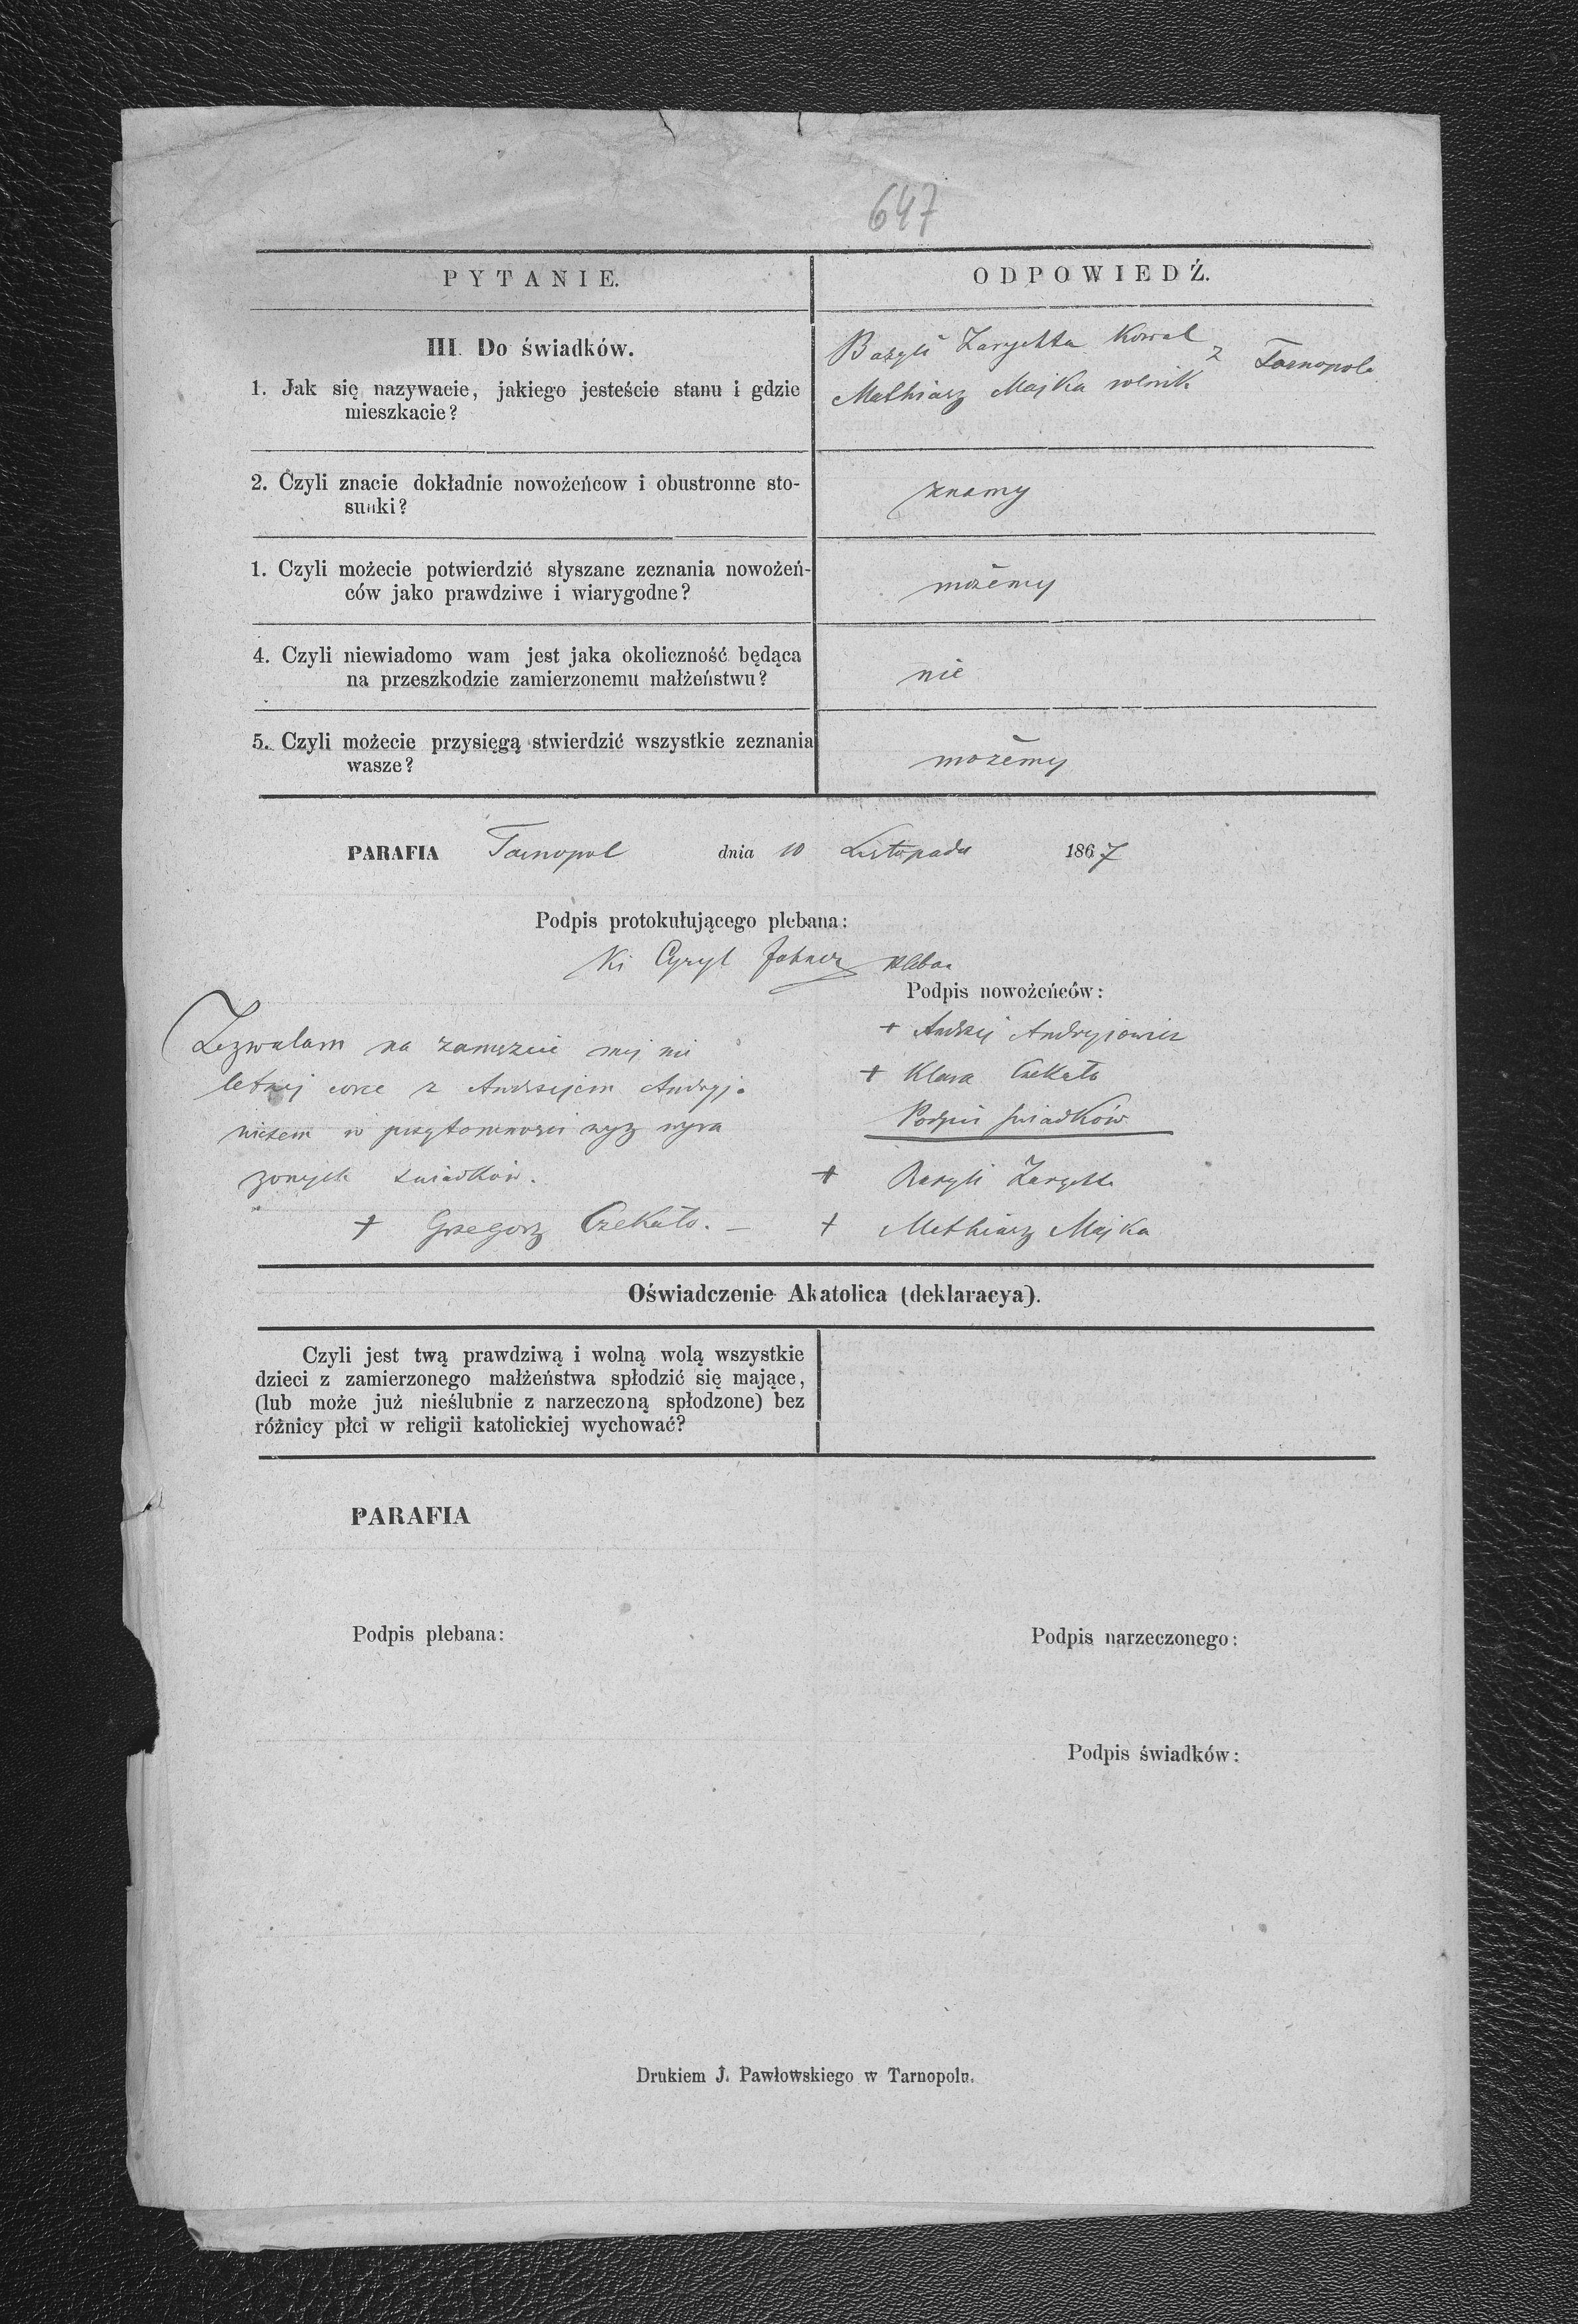 647
PYTANIE.
ODPOWIEDŹ.
III. Do świadków.
1. Jak się nazywacie, jakiego jesteście stanu i gdzie
mieszkacie?
Bazyli Zarychta Kowal
Mathiasz Majka rolnik
z Tarnopola
2. Czyli znacie dokładnie nowożeńcow i obustronne sto-
sunki?
znamy
1. Czyli możecie potwierdzić słyszane zeznania nowożeń-
ców jako prawdziwe i wiarygodne?
możemy
4. Czyli niewiadomo wam jest jaka okoliczność będąca
na przeszkodzie zamierzonemu małżeństwu?
nie
5. Czyli możecie przysięgą stwierdzić wszystkie zeznania
wasze?
możemy
PARAFIA Tarnopol dnia 10 Listopada 1867
Podpis protokułującego plebana:
Cyryl pleban
Podpis nowożeńców:
+ Andrzej Andryjowicz
+ Klara Czekało
Podpis swiadków
+ Bazyli Zarychta
+ Mathiasz Majka
Zezwalam na zamęzcie mej nie
letniej corce z Andrzejem Andryjo
wiczem w przytomnosci wyz wyra
zonych swiadków.
+ Grzegorz Czekało. —
Oświadczenie Akatolica (deklaracya).
Czyli jest twą prawdziwą i wolną wolą wszystkie
dzieci z zamierzonego małżeństwa spłodzić się mające,
(lub może już nieślubnie z narzeczoną spłodzone) bez
różnicy płci w religii katolickiej wychować?
PARAFIA
Podpis plebana:
Podpis narzeczonego:
Podpis świadków:
Drukiem J. Pawłowskiego w Tarnopolu.